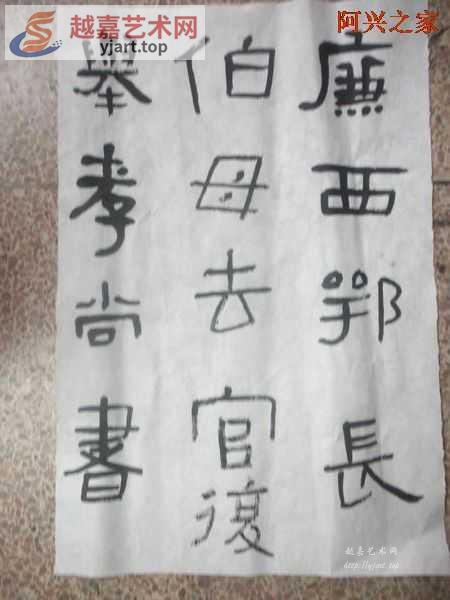 廡西鄂長
伯母去官復
舉孝尚書
越嘉艺术网
yjart.top
阿兴之家
越嘉艺术网
http://yjart.top